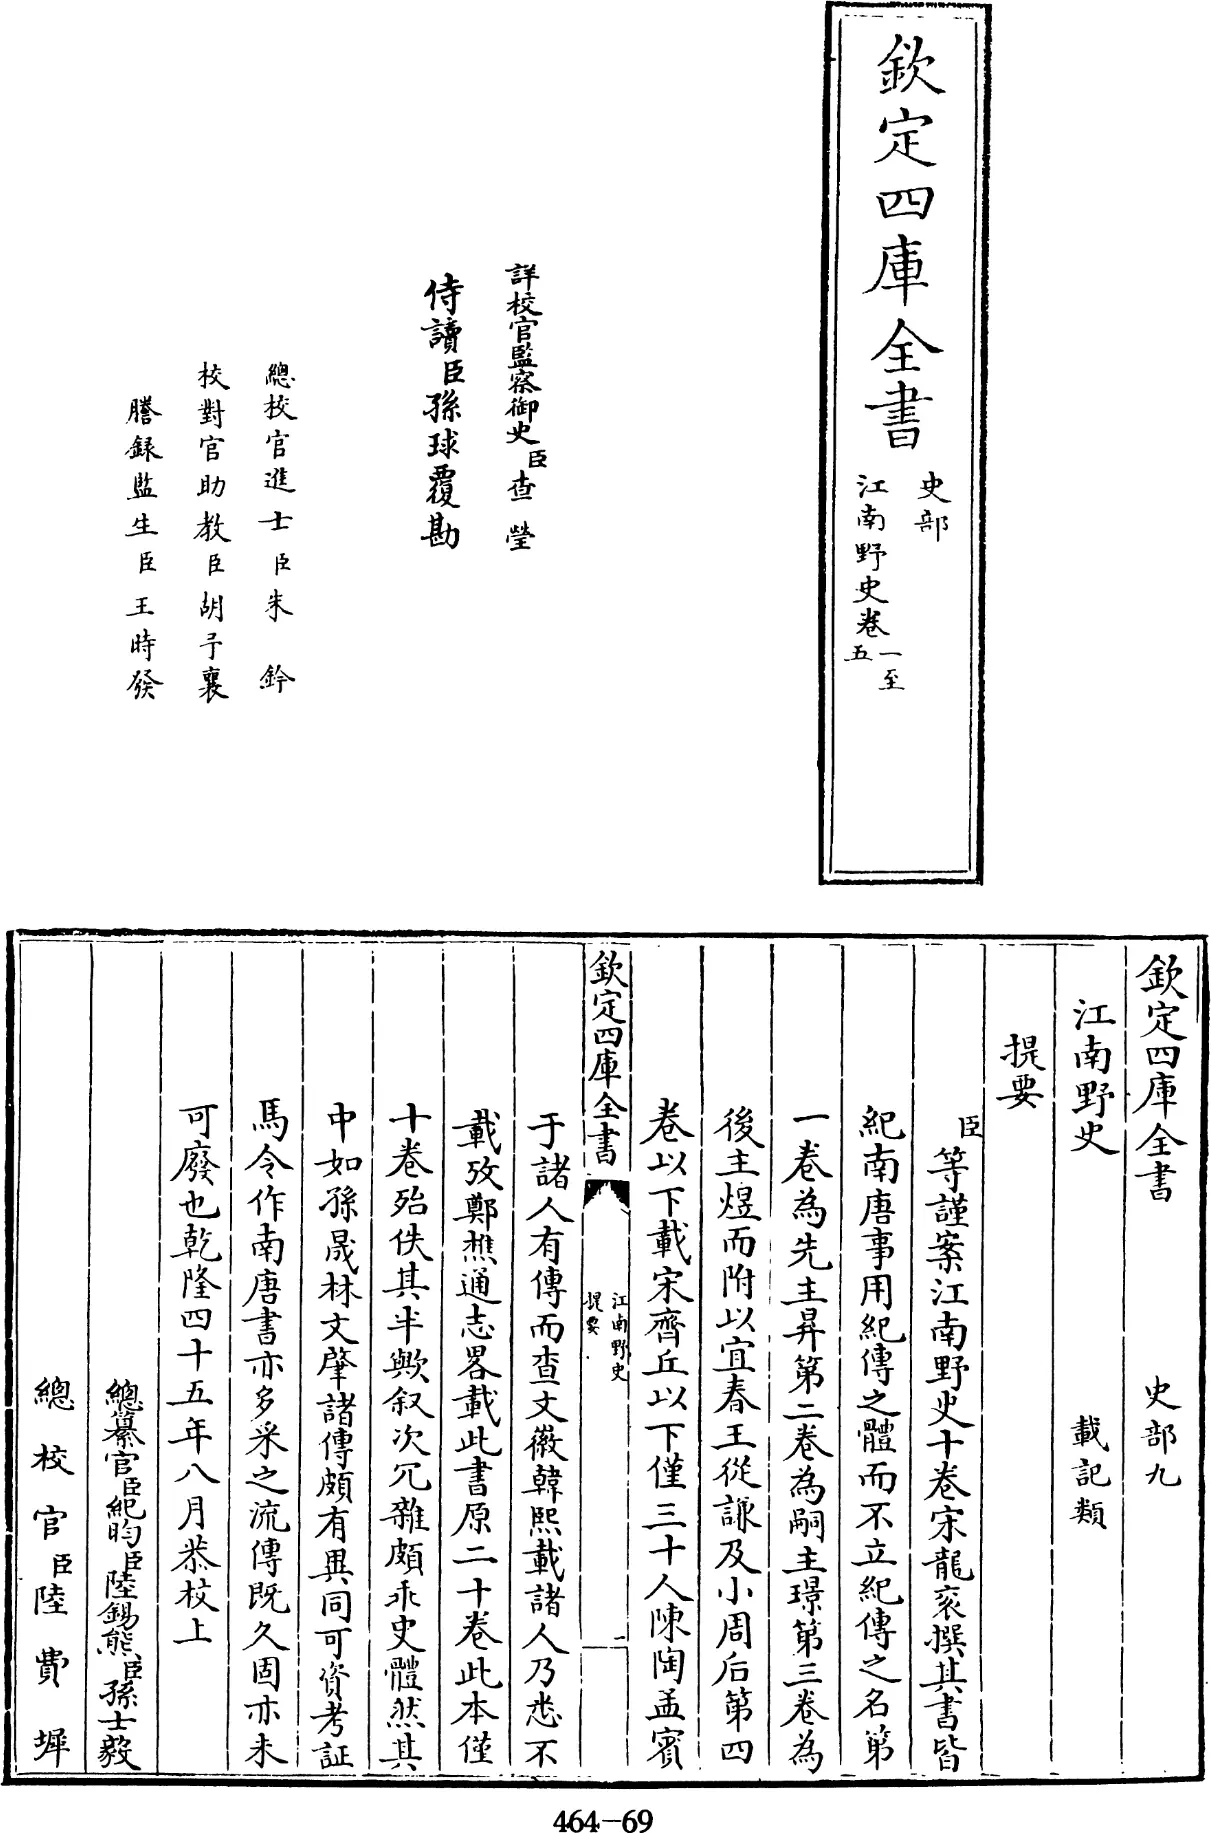 欽定四庫全書
史部
江南野史卷一至五
詳校官監察御史臣查瑩
侍讀臣孫球覆勘
總校官進士臣朱鈐
校對官助教臣胡予襄
謄錄監生臣王時發
欽定四庫全書 史部九
江南野史 載記類
提要
臣等謹案江南野史十卷宋龍袞撰其書皆
紀南唐事用紀傳之體而不立紀傳之名第
一卷為先主昇第二卷為嗣主璟第三卷為
後主煜而附以宜春王從謙及小周后第四
卷以下載宋齊丘以下僅三十人陳陶孟賓
欽定四庫全書
江南野史
提要
一
于諸人有傳而查文徽韓熙載諸人乃悉不
載攷鄭樵通志畧載此書原二十卷此本僅
十卷殆佚其半歟叙次冗雜頗乖史體然其
中如孫晟林文肇諸傳頗有異同可資考証
馬令作南唐書亦多采之流傳既久固亦未
可廢也乾隆四十五年八月恭校上
總纂官臣紀昀臣陸錫熊臣孫士毅
總校官臣陸費墀
464-69